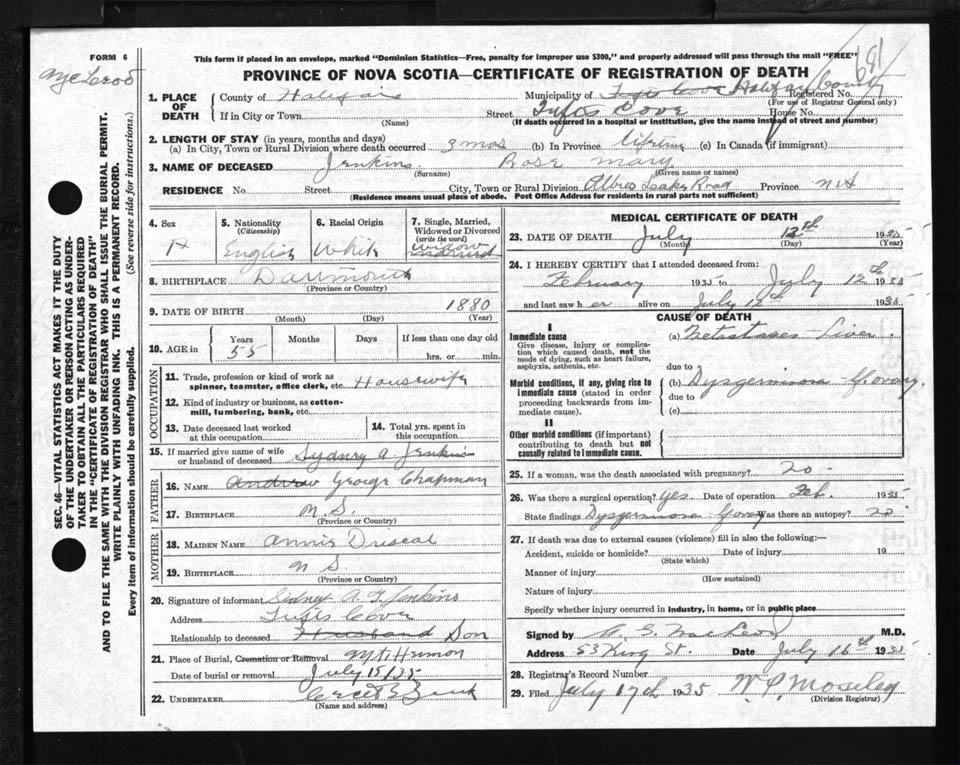 FORM 6
This form if placed in an envelope, marked "Dominion Statistics—Free, penalty for improper use $300," and properly addressed will pass through the mail "FREE"
PROVINCE OF NOVA SCOTIA—CERTIFICATE OF REGISTRATION OF DEATH
1. PLACE OF DEATH
County of Halifax Municipality of Tufts Cove Halifax County Registered No.
(For use of Registrar General only)
If in City or Town Street Tufts Cove House No.
(Name) (If death occurred in a hospital or institution, give the name instead of street and number)
2. LENGTH OF STAY (in years, months and days)
(a) In City, Town or Rural Division where death occurred 3 mos (b) In Province lifetime (c) In Canada (if immigrant)
3. NAME OF DECEASED Jenkins Rose Mary
(Surname) (Given name or names)
RESIDENCE No. Street City, Town or Rural Division Albro Lake Road Province N.S
(Residence means usual place of abode. Post Office Address for residents in rural parts not sufficient)
SEC. 46—VITAL STATISTICS ACT MAKES IT THE DUTY
OF THE UNDERTAKER OR PERSON ACTING AS UNDER-
TAKER TO OBTAIN ALL THE PARTICULARS REQUIRED
IN THE "CERTIFICATE OF REGISTRATION OF DEATH"
AND TO FILE THE SAME WITH THE DIVISION REGISTRAR WHO SHALL ISSUE THE BURIAL PERMIT.
WRITE PLAINLY WITH UNFADING INK. THIS IS A PERMANENT RECORD.
Every item of information should be carefully supplied. (See reverse side for instructions.)
4. Sex
5. Nationality (Citizenship) English
6. Racial Origin White
7. Single, Married, Widowed or Divorced (write the word) Widow married
8. BIRTHPLACE Dartmouth
(Province or Country)
9. DATE OF BIRTH 1880
(Month) (Day) (Year)
10. AGE in Years 55 Months Days If less than one day old hrs. or min.
OCCUPATION
11. Trade, profession or kind of work as spinner, teamster, office clerk, etc. Housewife
12. Kind of industry or business, as cotton-mill, lumbering, bank, etc.
13. Date deceased last worked at this occupation
14. Total yrs. spent in this occupation
15. If married give name of wife or husband of deceased Sydney A. Jenkins
FATHER
16. NAME Andrew George Chapman
17. BIRTHPLACE N.S.
(Province or Country)
MOTHER
18. MAIDEN NAME Annie Driscal
19. BIRTHPLACE N S.
(Province or Country)
20. Signature of informant Sidney A. J. Jenkins
Address Tufts Cove
Relationship to deceased Husband Son
21. Place of Burial, Cremation or Removal Mt. Hermon
Date of burial or removal July 15/35
22. UNDERTAKER
(Name and address)
MEDICAL CERTIFICATE OF DEATH
23. DATE OF DEATH July 12th 1935
(Month) (Day) (Year)
24. I HEREBY CERTIFY that I attended deceased from:
February 1935 to July 12th 1935
and last saw h er alive on July 12th 1935
CAUSE OF DEATH
I
Immediate cause
Give disease, injury or complica-
tion which caused death, not the
mode of dying, such as heart failure,
asphyxia, asthenia, etc.
(a) Metastases Liver
due to
Morbid conditions, if any, giving rise to
immediate cause (stated in order
proceeding backwards from im-
mediate cause).
(b) Dysgerminoma of ovary
due to
(c)
II
Other morbid conditions (if important)
contributing to death but not
causally related to immediate cause.
25. If a woman, was the death associated with pregnancy? no
26. Was there a surgical operation? Yes Date of operation Feb. 1935
State findings Dysgerminoma of ovary Was there an autopsy? no
27. If death was due to external causes (violence) fill in also the following:—
Accident, suicide or homicide? Date of injury 19
(State which)
Manner of injury
(How sustained)
Nature of injury
Specify whether injury occurred in industry, in home, or in public place
Signed by MacLeod M.D.
Address 53 King St. Date July 16th 1935
28. Registrar's Record Number
29. Filed July 17th 1935 W. P. Moseley
(Division Registrar)